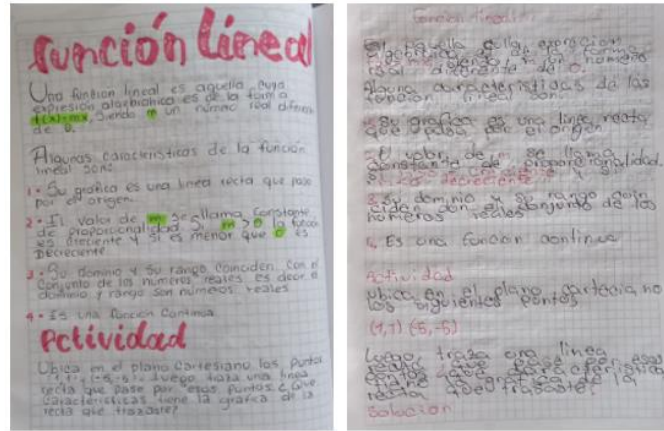 Función Lineal
Una función lineal es aquella cuya
expresión algebraica es de la forma
f(x)=mx, siendo m un número real diferen
de 0.
Algunas características de la función
lineal son:
1. Su gráfica es una línea recta que pasa
por el origen.
2. El valor de m se llama constante
de proporcionalidad Si m > 0 la función
es creciente y si es menor que 0 es
Decreciente
3. Su dominio y su rango coinciden con el
conjunto de los números reales es decir el
dominio y rango son números reales
4. Es una función continua
Actividad
Ubica en el plano cartesiano los puntos
(-5,-5) Luego traza una línea
recta que pase por esos puntos ¿Que
características tiene la gráfica de la
recta que trazaste?
Función lineal
aquella expresión
de la forma
siendo m un número
real diferente de 0.
Algunas características de las
función lineal son:
Su gráfica es una línea recta
que pasa por el origen
El valor de m se llama
constante de proporcionalidad
decreciente
3. Su dominio y su rango coin
ciden con el conjunto de los
números reales
4. Es una función continua
Actividad
Ubica en el plano cartecia no
los siguientes puntos
(1,1) (-5,-5)
Luego traza una línea
que pase por esos
característica
la gráfica de la
recta que trasaste?
Solución